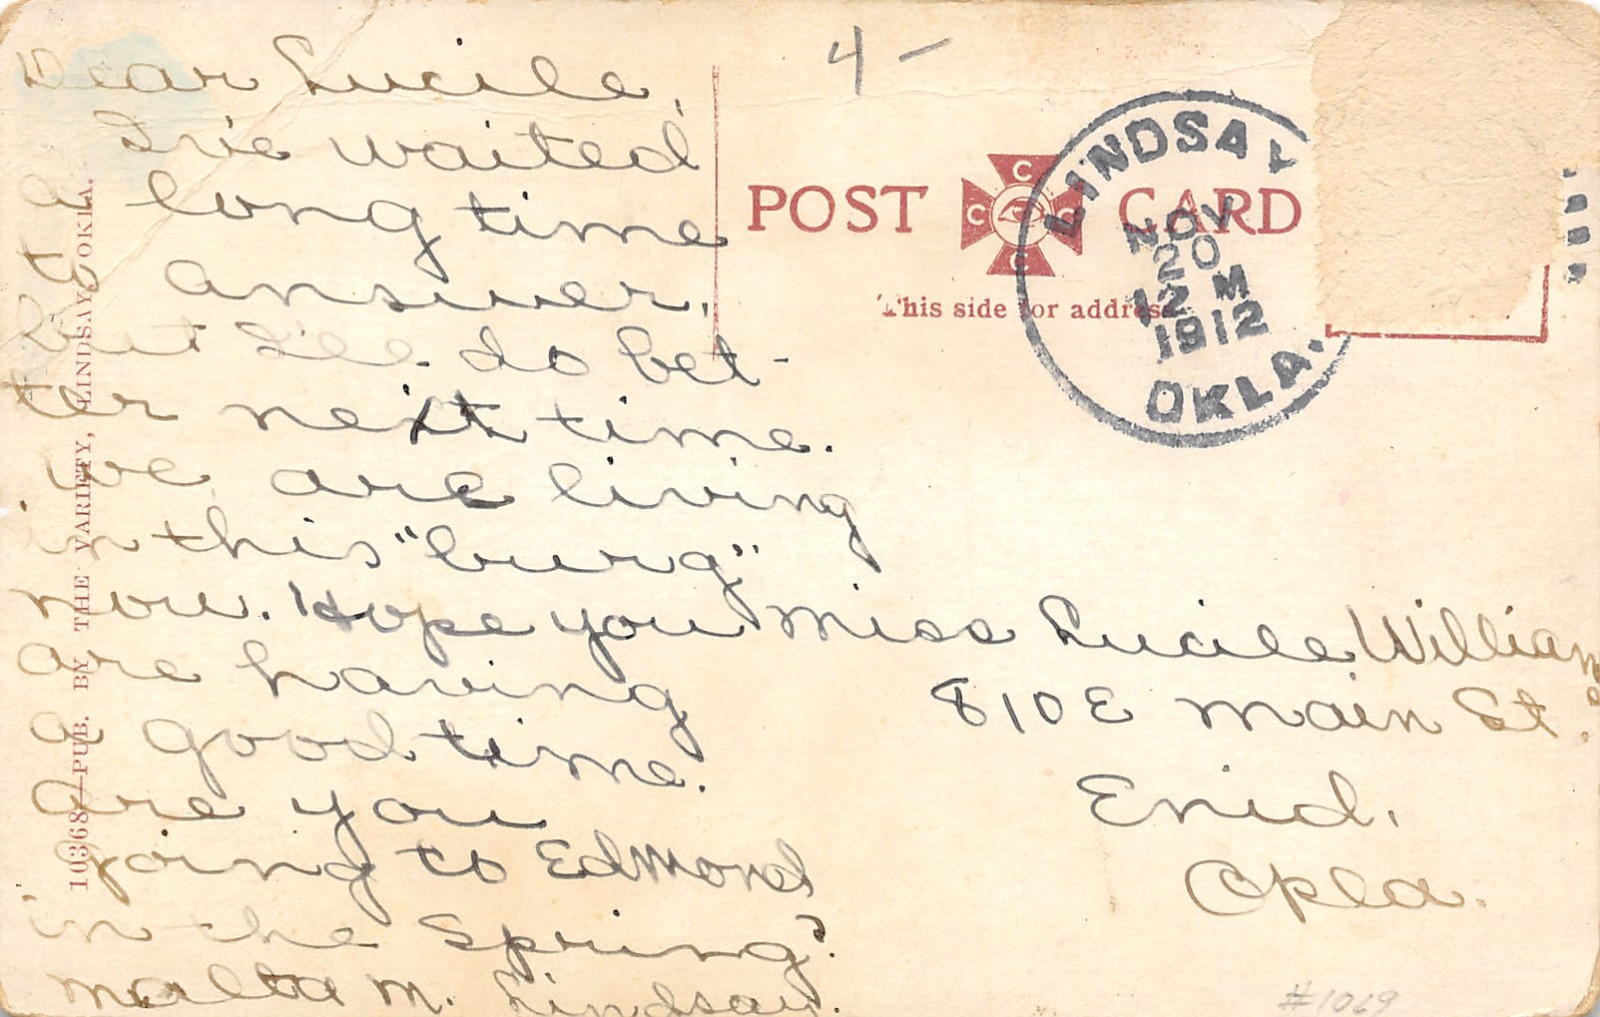 Dear Lucile,
I've waited
a long time
to answer.
but I'll do bet-
ter next time.
we are living
in this "burg"
now. Hope you
are having
a good time.
are you
going to Edmond
in the Spring?
M. Lindsay.
4 -
POST CARD
C C C C
This side for address
LINDSAY
NOV
20
12 M
1912
OKLA.
Miss Lucile Williams
810 E main St.
Enid.
Okla.
10368—PUB. BY THE VARIETY, LINDSAY, OKLA.
#1069